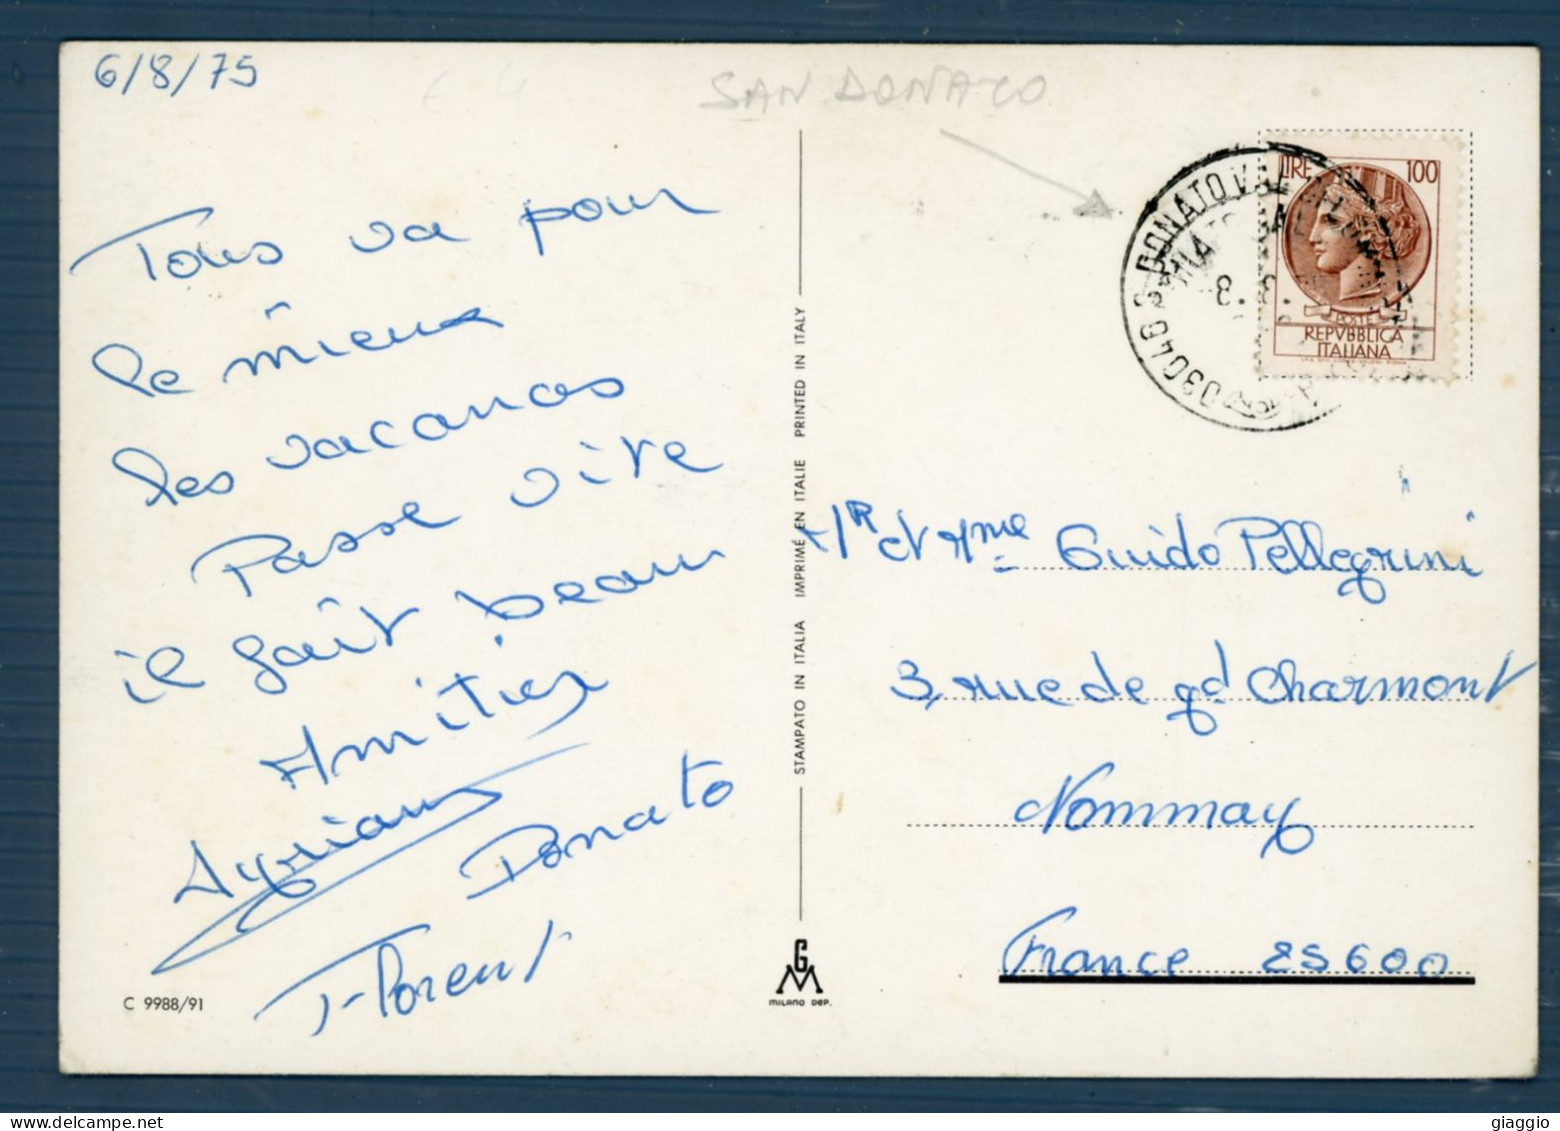 6/8/75
SAN DONATO
Tous va pour
le mieux
les vacances
Passe vite
il fait beau
Amitiés
Donato
Florent
C 9988/91
STAMPATO IN ITALIA IMPRIMÉ EN ITALIE PRINTED IN ITALY
GM
MILANO DEP.
03046 S. DONATO VAL
8.8.
LIRE 100
POSTE
REPVBBLICA
ITALIANA
Mr et Mme Guido Pellegrini
3, rue de gd Charmont
Nommay
France 25600
giaggio